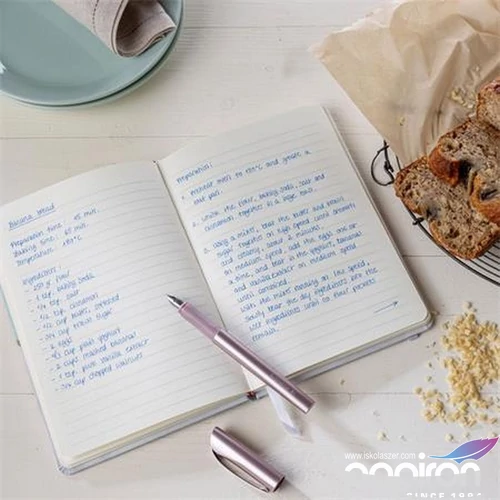 Banana bread
Preparation time: 45 min.
Baking time: 65 min.
Temperature: 177°C
Ingredients:
- 250 gr. flour
- 1 tsp. baking soda
- 1/4 tsp. salt
- 1/2 tsp. cinnamon
- 1/2 cup butter, softened
- 3/4 cup brown sugar
- 2 eggs
- 1/3 cup plain yoghurt
- 2 cups mashed bananas
- 1 tsp. pure vanilla extract
- 3/4 cup chopped walnuts
Preparation:
1. Preheat oven to 177°C and grease a
loaf pan.
2. Whisk the flour, baking soda, salt and
cinnamon together in a large bowl.
3. Using a mixer, beat the butter and brown
sugar together on high speed until smooth
and creamy, about 2 minutes.
on medium speed, add the eggs one at
a time, and beat in the yoghurt, bananas
and vanilla extract on medium speed
until combined.
With the mixer running on low speed,
slowly beat the dry ingredients into the
wet ingredients until no flour pockets
remain.
www.iskolaszer.com